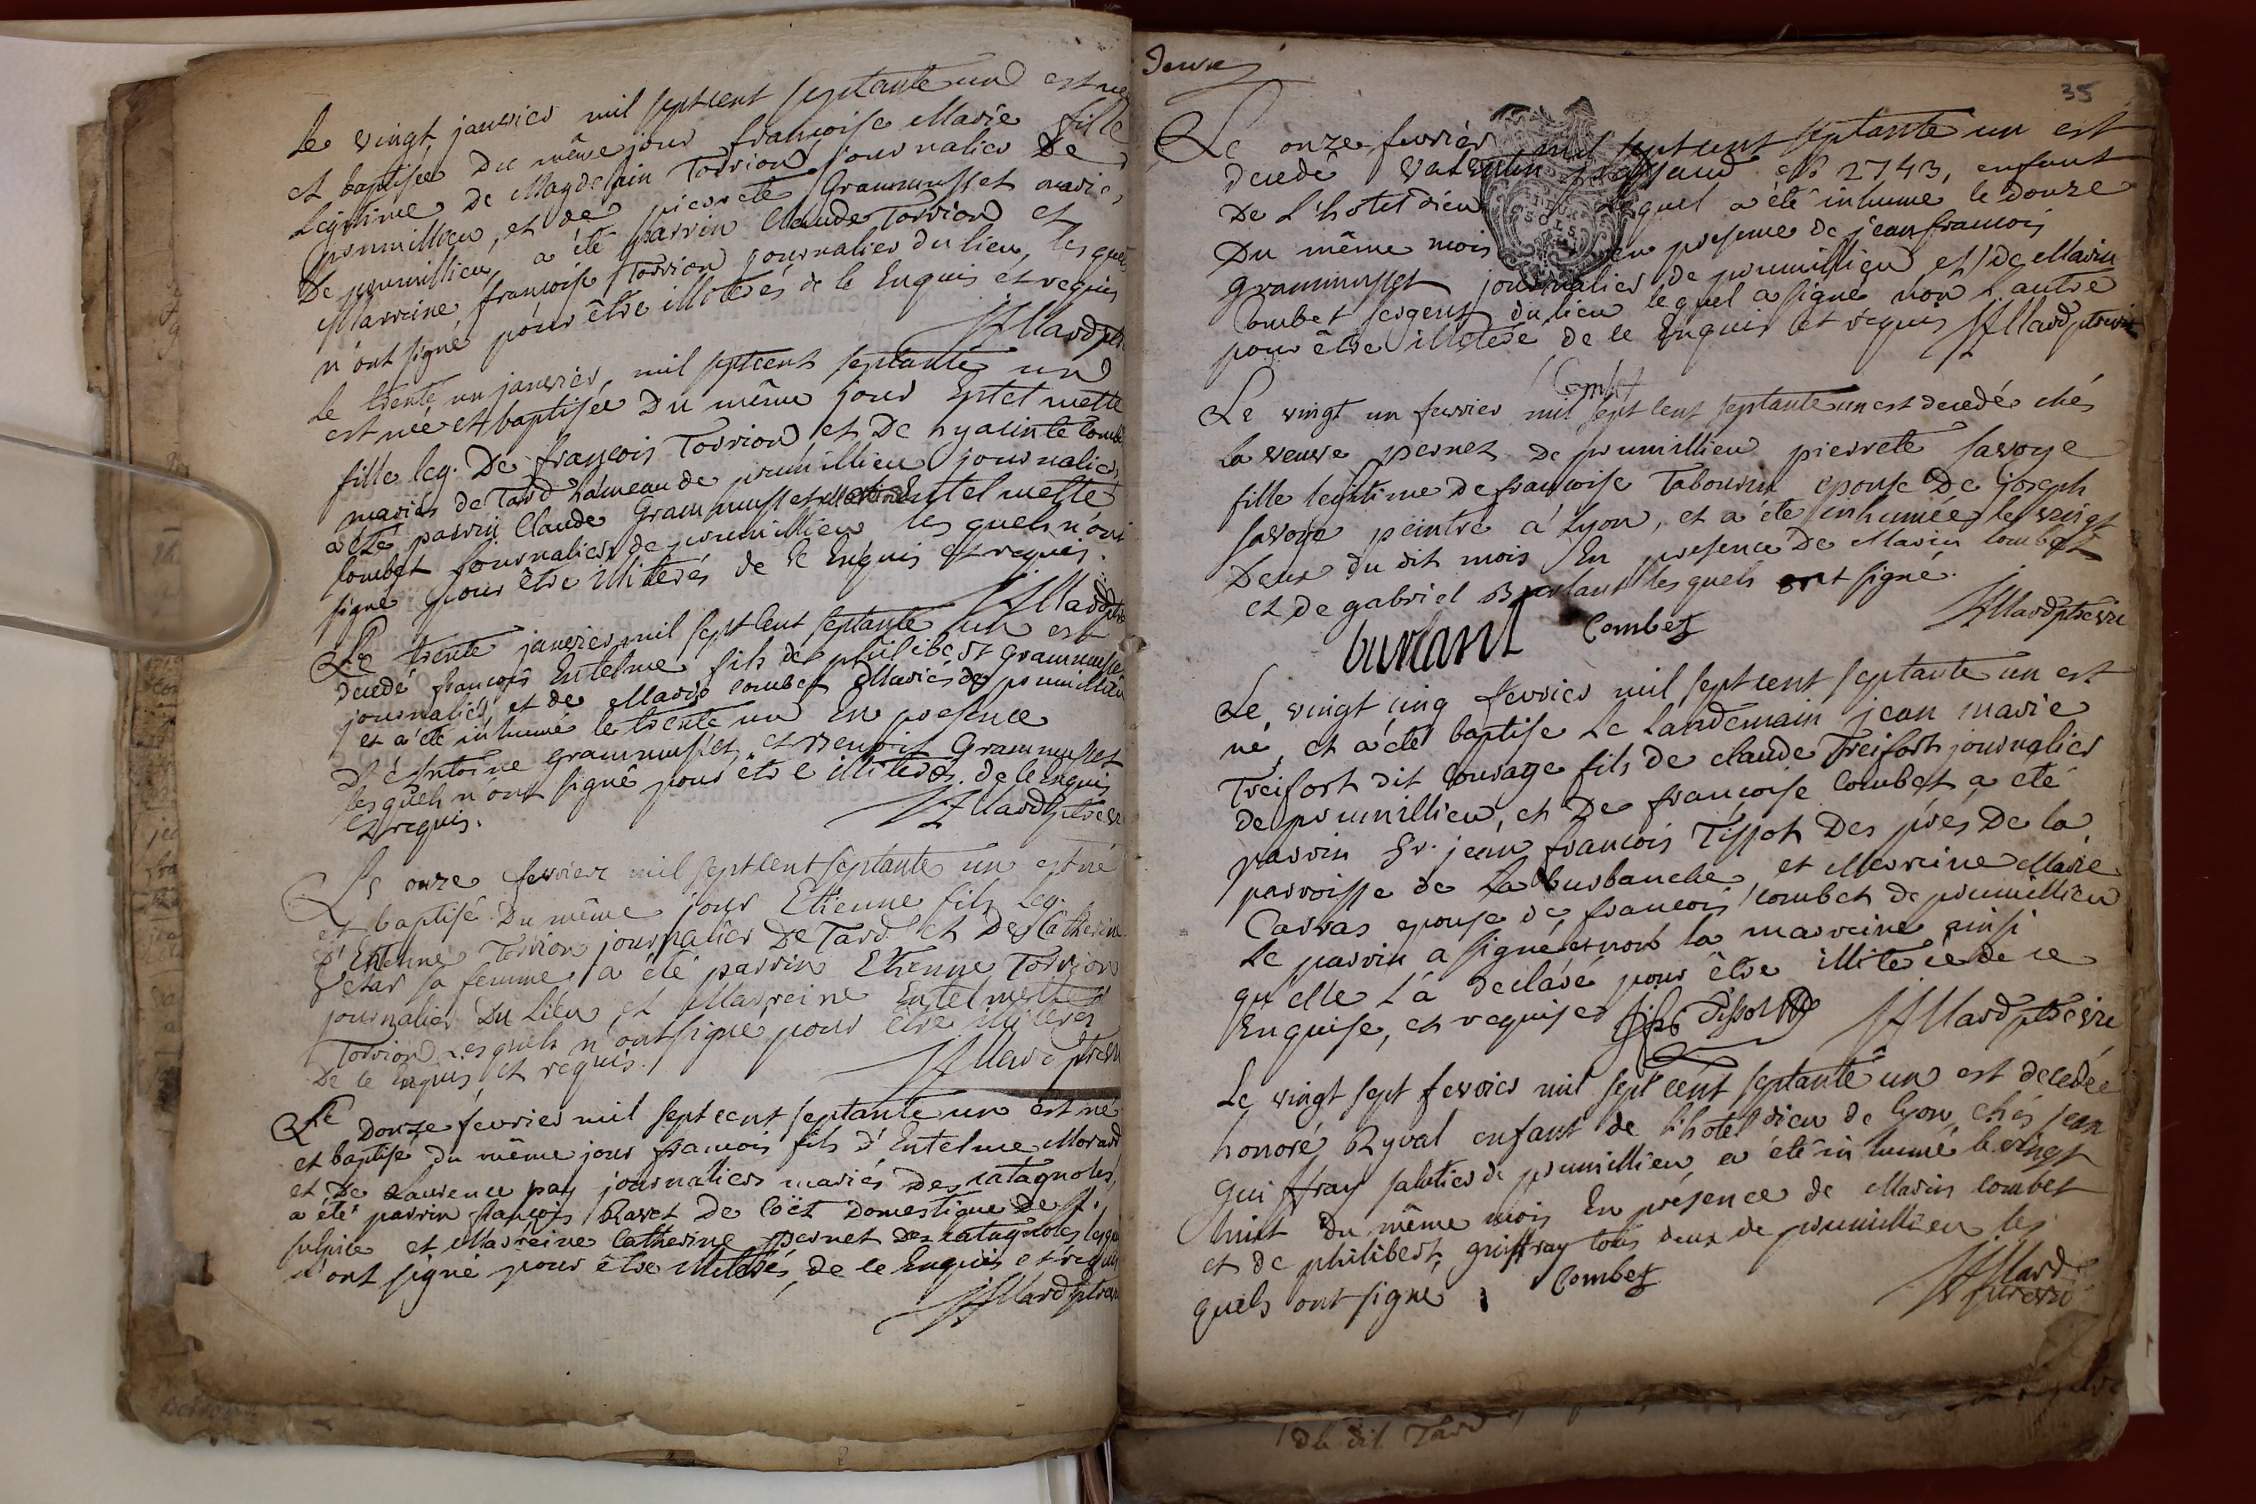 Le vingt janvier mil septcent septante un est née
et baptisée du même jour françoise Marie fille
Legitime de Magdelain Torrion journalier de
prumillieu, et de pierrete Grammusset mariés
De prumillieu, a été parrin Claude Torrion et
Marreine françoise Torrion journalier du lieu, les quels
n'ont signé pour être illiterés de ce Enquis et requis
Mard ptre
Le trente un janvier mil septcent septante un
est née et baptisée du même jour Entelmette
fille leg. De françois Torrion et De hyacinte Combet
mariés de Tard hameau de prumillieu journaliers
a été parrin Claude Grammusset et Entelmette
Combet journaliers de prumillieu les quels n'ont
signé pour être illiterés de ce Enquis et requis.
Mard ptre
Le trente janvier mil sept cent septante un est
decedé françois Entelme fils de philibert Grammusset
journalier et de Marie Combet Mariés de prumillieu
et a été inhumé le trente un En presence
D'Antoine Grammusset, et Benoit Grammusset
les quels n'ont signé pour être illiterés de ce Enquis
Et requis.
Mard ptrevre
Le onze fevrier mil sept cent septante un est né
et baptisé du même jour Etienne fils Leg.
d'Etienne Torrion journalier De Tard et De Catherine
sa femme a été parrin Etienne Torrion
journalier Du Lieu et Marreine Entelmette
Torrion Les quels n'ont signé pour être illiterés
De ce Enquis et requis.
Mard ptrevre
Le Douze fevrier mil sept cent septante un est né
et baptisé du même jour françois fils d'Entelme Morard
et De Laurence pay journaliers mariés Des catagnoles,
a été parrin françois Ravet De Coët Domestique De St.
sulpice et Marreine Catherine pernet Des catagnoles lesquels
n'ont signé pour être illiterés, de ce Enquis et requis
Mard ptrevre
35
Le onze fevrier mil sept cent septante un est
decedé Valentin No 2743, enfant
De L'hotel dieu lequel a été inhumé le douze
Du même mois en presence de jean françois
grammusset journalier de prumillieu et de Marin
Combet sergent du lieu lequel a signé non L'autre
pour être illiteré de ce Enquis et requis Mard ptrevre
Combet
Le vingt un fevrier mil sept cent septante un est decedée chés
la veuve pernet De prumillieu pierrete Savoye
fille legitime de françoise Tabourin epouse De joseph
Savoye peintre a Lyon, et a été inhumée le vingt
Deux du dit mois En presence De Marin Combet
et de gabriel Burlant les quels ont signé.
burlant Combet Mard ptrevre
Le vingt cinq fevrier mil sept cent septante un est
né, et a été baptisé Le Landemain jean marie
Treifort dit Courage fils de claude Treifort journalier
de prumillieu, et De françoise Combet a été
parrin Sr. jean françois Tissot Des prés De la
parroisse de La burbanche et Marreine Marie
Carras epouse de françois Combet de prumillieu
Le parrin a signé et non la marreine ainsi
qu'elle L'a declaré pour être illiterée de ce
Enquise, et requise Tissot Mard ptrevre
Le vingt sept fevrier mil sept cent septante un est decedée
honoré Ryval enfant de L'hotel dieu de Lyon, chés jean
Guiffray sabotier de prumillieu, a été inhumé le vingt
huit du même mois En présence de Marin Combet
et de philibert guiffray tous deux de prumillieu les
quels ont signé Combet Mard
De dit Tard